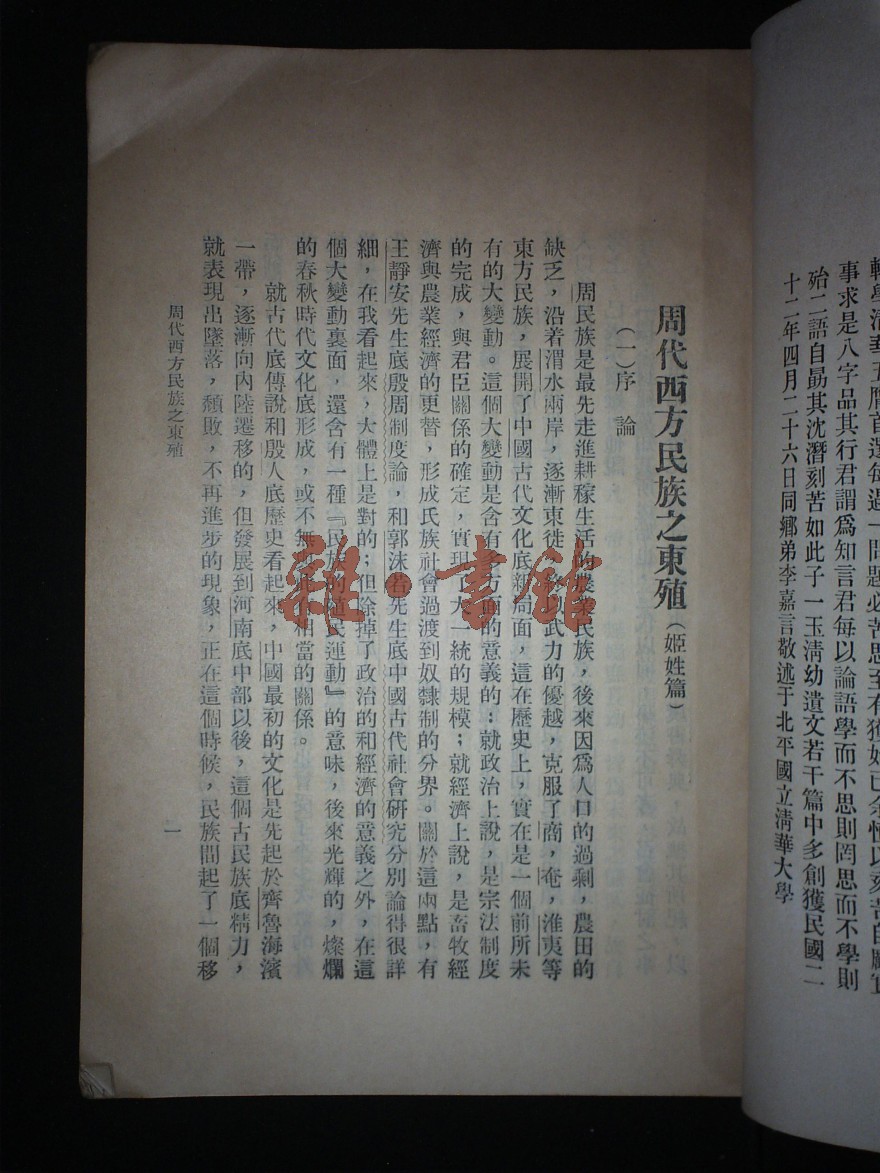 轉學清華五膺首選每遇一問題必苦思至有獲始已余
事求是八字品其行君謂爲知言君每以論語學而不思則罔思而不學則
殆二語自勗其沈潛刻苦如此子一玉清幼遺文若干篇中多創獲民國二
十二年四月二十六日同鄉弟李嘉言敬述于北平國立清華大學
周代西方民族之東殖(姬姓篇)
(一)序論
周民族是最先走進耕稼生活的農業民族,後來因爲人口的過剩,農田的
缺乏,沿着渭水兩岸,逐漸東徙,終以武力的優越,克服了商,奄,淮夷等
東方民族,展開了中國古代文化底新局面,這在歷史上,實在是一個前所未
有的大變動。這個大變動是含有多方面的意義的:就政治上說,是宗法制度
的完成,與君臣關係的確定,實現了大一統的規模;就經濟上說,是畜牧經
濟與農業經濟的更替,形成氏族社會過渡到奴隸制的分界。關於這兩點,有
王靜安先生底殷周制度論,和郭沫若先生底中國古代社會研究分別論得很詳
細,在我看起來,大體上是對的;但除掉了政治的和經濟的意義之外,在這
個大變動裏面,還含有一種『民族的殖民運動』的意味,後來光輝的,燦爛
的春秋時代文化底形成,或不無與此有相當的關係。
就古代底傳說和殷人底歷史看起來,中國最初的文化是先起於齊魯海濱
一帶,逐漸向內陸遷移的,但發展到河南底中部以後,這個古民族底精力,
就表現出墜落,頹敗,不再進步的現象,正在這個時候,民族間起了一個移
周代西方民族之東殖
一
雜·書館